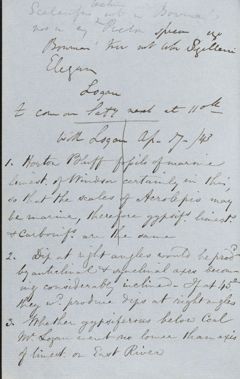 Elegans
Logan
to come on Saty next at 11 o'clk
With Logan Ap. 17 /43
1. Horton Bluff fossils of marine
limest. of Windsor certainly in this,
so that the scales of Acrolepis may
be marine, therefore gypsifs. limest.
& Carbonifs. are the same
2. Dip at right angles would be prodd.
by anticlinal & synclinal axes becom-
ing considerably inclined - If at 45°
they wd. produce dips at right angles
3. Whether gypsiferous below Coal
Mr. Logan went no lower than axis
of limest. on East River